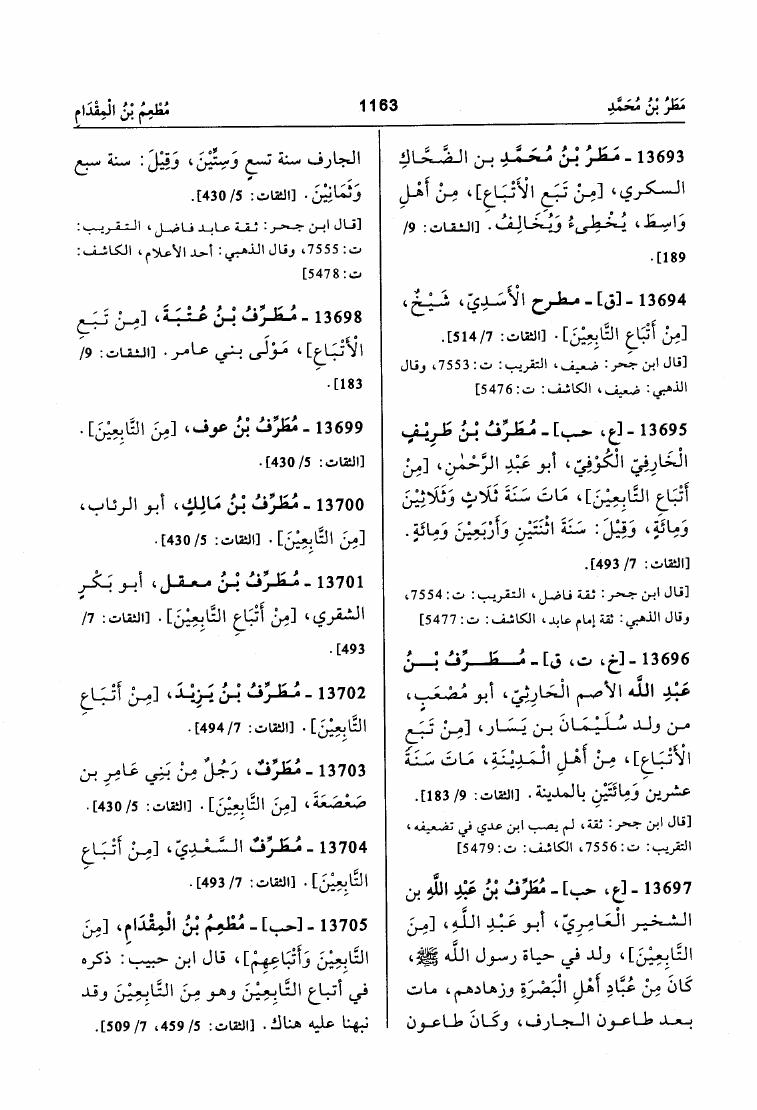 مَطَرُ بْنُ مُحَمَّدٍ
1163
مُطْعِمُ بْنُ الْمِقْدَامِ
13693 - مَطَرُ بْنُ مُحَمَّدِ بن الضَّحَّاكِ
السكري، [مِنْ تَبَعِ الأَتْبَاعِ]، مِنْ أَهْلِ
وَاسِطَ، يُخْطِىءُ وَيُخَالِفُ. [الثقات: 9/
189].
13694 - [ق] - مطرح الأَسَدِيّ، شَيْخٌ،
[مِنْ أَتْبَاعِ التَّابِعِيْنَ]. [الثقات: 7/ 514].
[قال ابن حجر: ضعيف، التقريب: ت: 7553، وقال
الذهبي: ضعيف، الكاشف: ت: 5476]
13695 - [ع، حب] - مُطَرِّفُ بْنُ طَرِيْفٍ
الْخَارِفِيّ الْكُوْفِيّ، أبو عَبْدِ الرَّحْمٰنِ، [مِنْ
أَتْبَاعِ التَّابِعِيْنَ]، مَاتَ سَنَةَ ثَلَاثٍ وَثَلَاثِيْنَ
وَمِائَةٍ، وَقِيْلَ: سَنَةَ اثْنَتَيْنِ وَأَرْبَعِيْنَ وَمِائَةٍ.
[الثقات: 7/ 493].
[قال ابن حجر: ثقة فاضل، التقريب: ت: 7554،
وقال الذهبي: ثقة إمام عابد، الكاشف: ت: 5477]
13696 - [خ، ت، ق] - مُطَرِّفُ بْنُ
عَبْدِ اللَّه الأصم الْحَارِثِيّ، أبو مُصْعَبٍ،
من ولد سُلَيْمَانَ بن يَسَار، [مِنْ تَبَعِ
الْأَتْبَاعِ]، مِنْ أَهْلِ الْمَدِيْنَةِ، مَاتَ سَنَةَ
عشرين وَمِائَتَيْنِ بالمدينة. [الثقات: 9/ 183].
[قال ابن حجر: ثقة، لم يصب ابن عدي في تضعيفه،
التقريب: ت: 7556، الكاشف: ت: 5479]
13697 - [ع، حب] - مُطَرِّفُ بْنُ عَبْدِ اللَّهِ بن
الشخير الْعَامِرِيّ، أبو عَبْدِ اللَّهِ، [مِنَ
التَّابِعِيْنَ]، ولد في حياة رسول اللَّه ﷺ،
كَانَ مِنْ عُبَّادِ أَهْلِ الْبَصْرَةِ وزهادهم، مات
بعد طاعون الجارف، وكَانَ طاعون
الجارف سنة تسعٍ وَسِتِّيْنَ، وَقِيْلَ: سنة سبع
وَثَمَانِيْنَ. [الثقات: 5/ 430].
[قال ابن حجر: ثقة عابد فاضل، التقريب:
ت: 7555، وقال الذهبي: أحد الأعلام، الكاشف:
ت: 5478]
13698 - مُطَرِّفُ بْنُ عُتْبَةَ، [مِنْ تَبَعِ
الْأَتْبَاعِ]، مَوْلَى بني عامر. [الثقات: 9/
183].
13699 - مُطَرِّفُ بْنُ عوف، [مِنَ التَّابِعِيْنَ].
[الثقات: 5/ 430].
13700 - مُطَرِّفُ بْنُ مَالِكٍ، أبو الرئاب،
[مِنَ التَّابِعِيْنَ]. [الثقات: 5/ 430].
13701 - مُطَرِّفُ بْنُ معقل، أبو بَكْرٍ
الشقري، [مِنْ أَتْبَاعِ التَّابِعِيْنَ]. [الثقات: 7/
493].
13702 - مُطَرِّفُ بْنُ يَزِيْدَ، [مِنْ أَتْبَاعِ
التَّابِعِيْنَ]. [الثقات: 7/ 494].
13703 - مُطَرِّفٌ، رَجُلٌ مِنْ بَنِي عَامِرِ بن
صَعْصَعَةَ، [مِنَ التَّابِعِيْنَ]. [الثقات: 5/ 430].
13704 - مُطَرِّفٌ السَّعْدِيّ، [مِنْ أَتْبَاعِ
التَّابِعِيْنَ]. [الثقات: 7/ 493].
13705 - [حب] - مُطْعِمُ بْنُ الْمِقْدَامِ، [مِنَ
التَّابِعِيْنَ وَأَتْبَاعِهِمْ]، قال ابن حبيب: ذكره
في أتباع التَّابِعِيْنَ وهو مِنَ التَّابِعِيْنَ وقد
نبهنا عليه هناك. [الثقات: 5/ 459، 7/ 509].